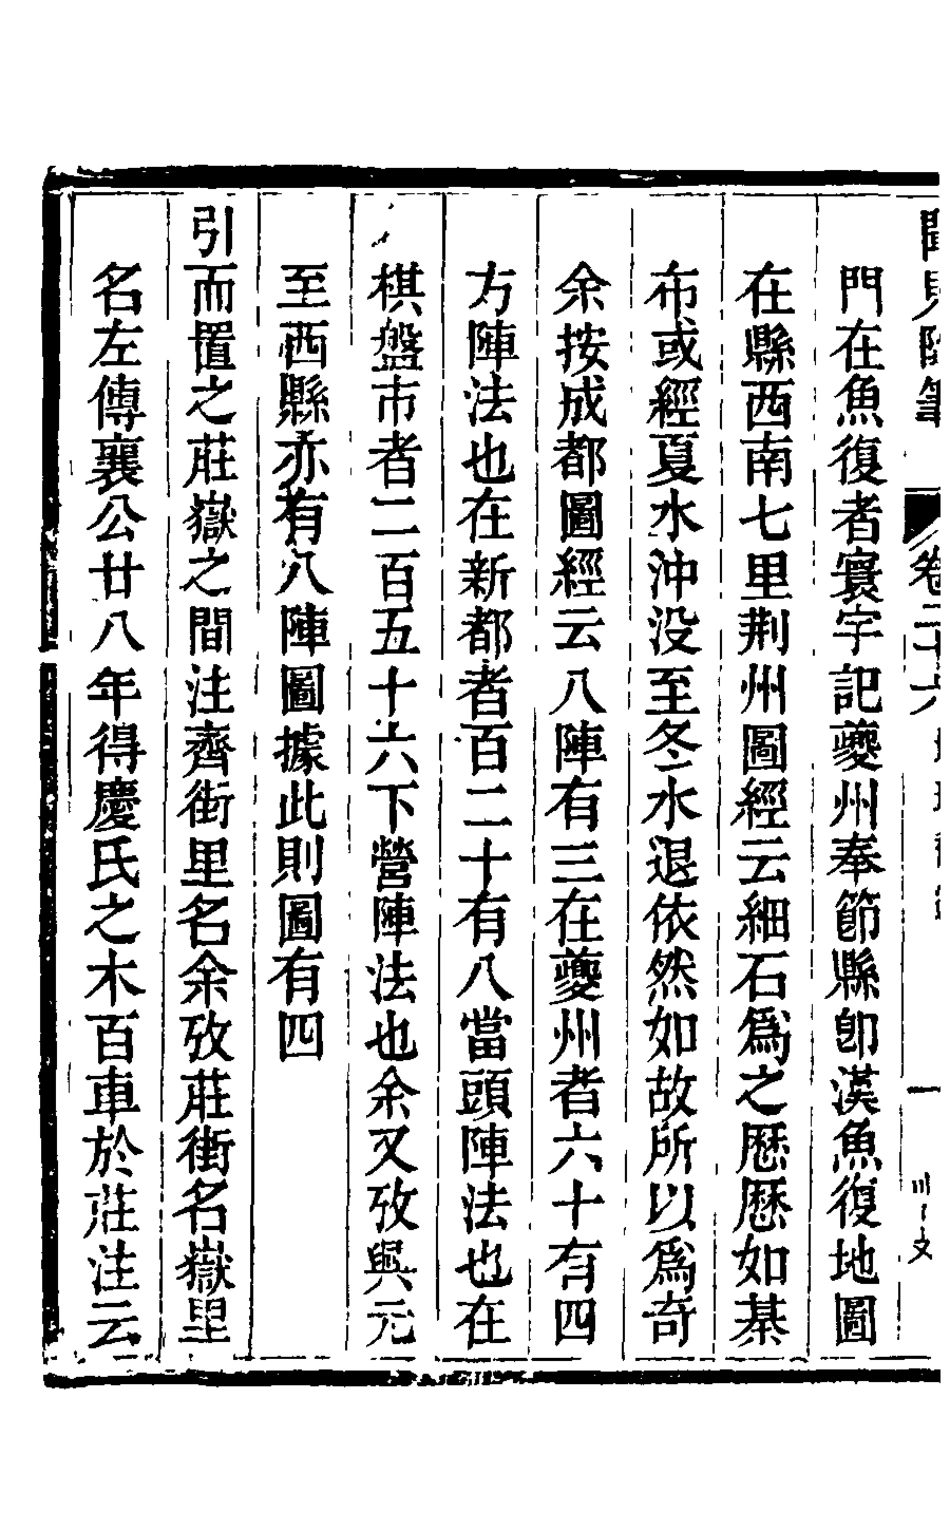 門在魚復者寰宇記夔州奉節縣卽漢魚復地圖
在縣西南七里荆州圖經云細石爲之歷歷如棊
布或經夏水沖没至冬水退依然如故所以爲奇
余按成都圖經云八陣有三在夔州者六十有四
方陣法也在新都者百二十有八當頭陣法也在
棋盤市者二百五十六下營陣法也余又攷興元
至西縣亦有八陣圖據此則圖有四
引而置之莊嶽之間注齊街里名余攷莊街名嶽里
名左傳襄公廿八年得慶氏之木百車於莊注云